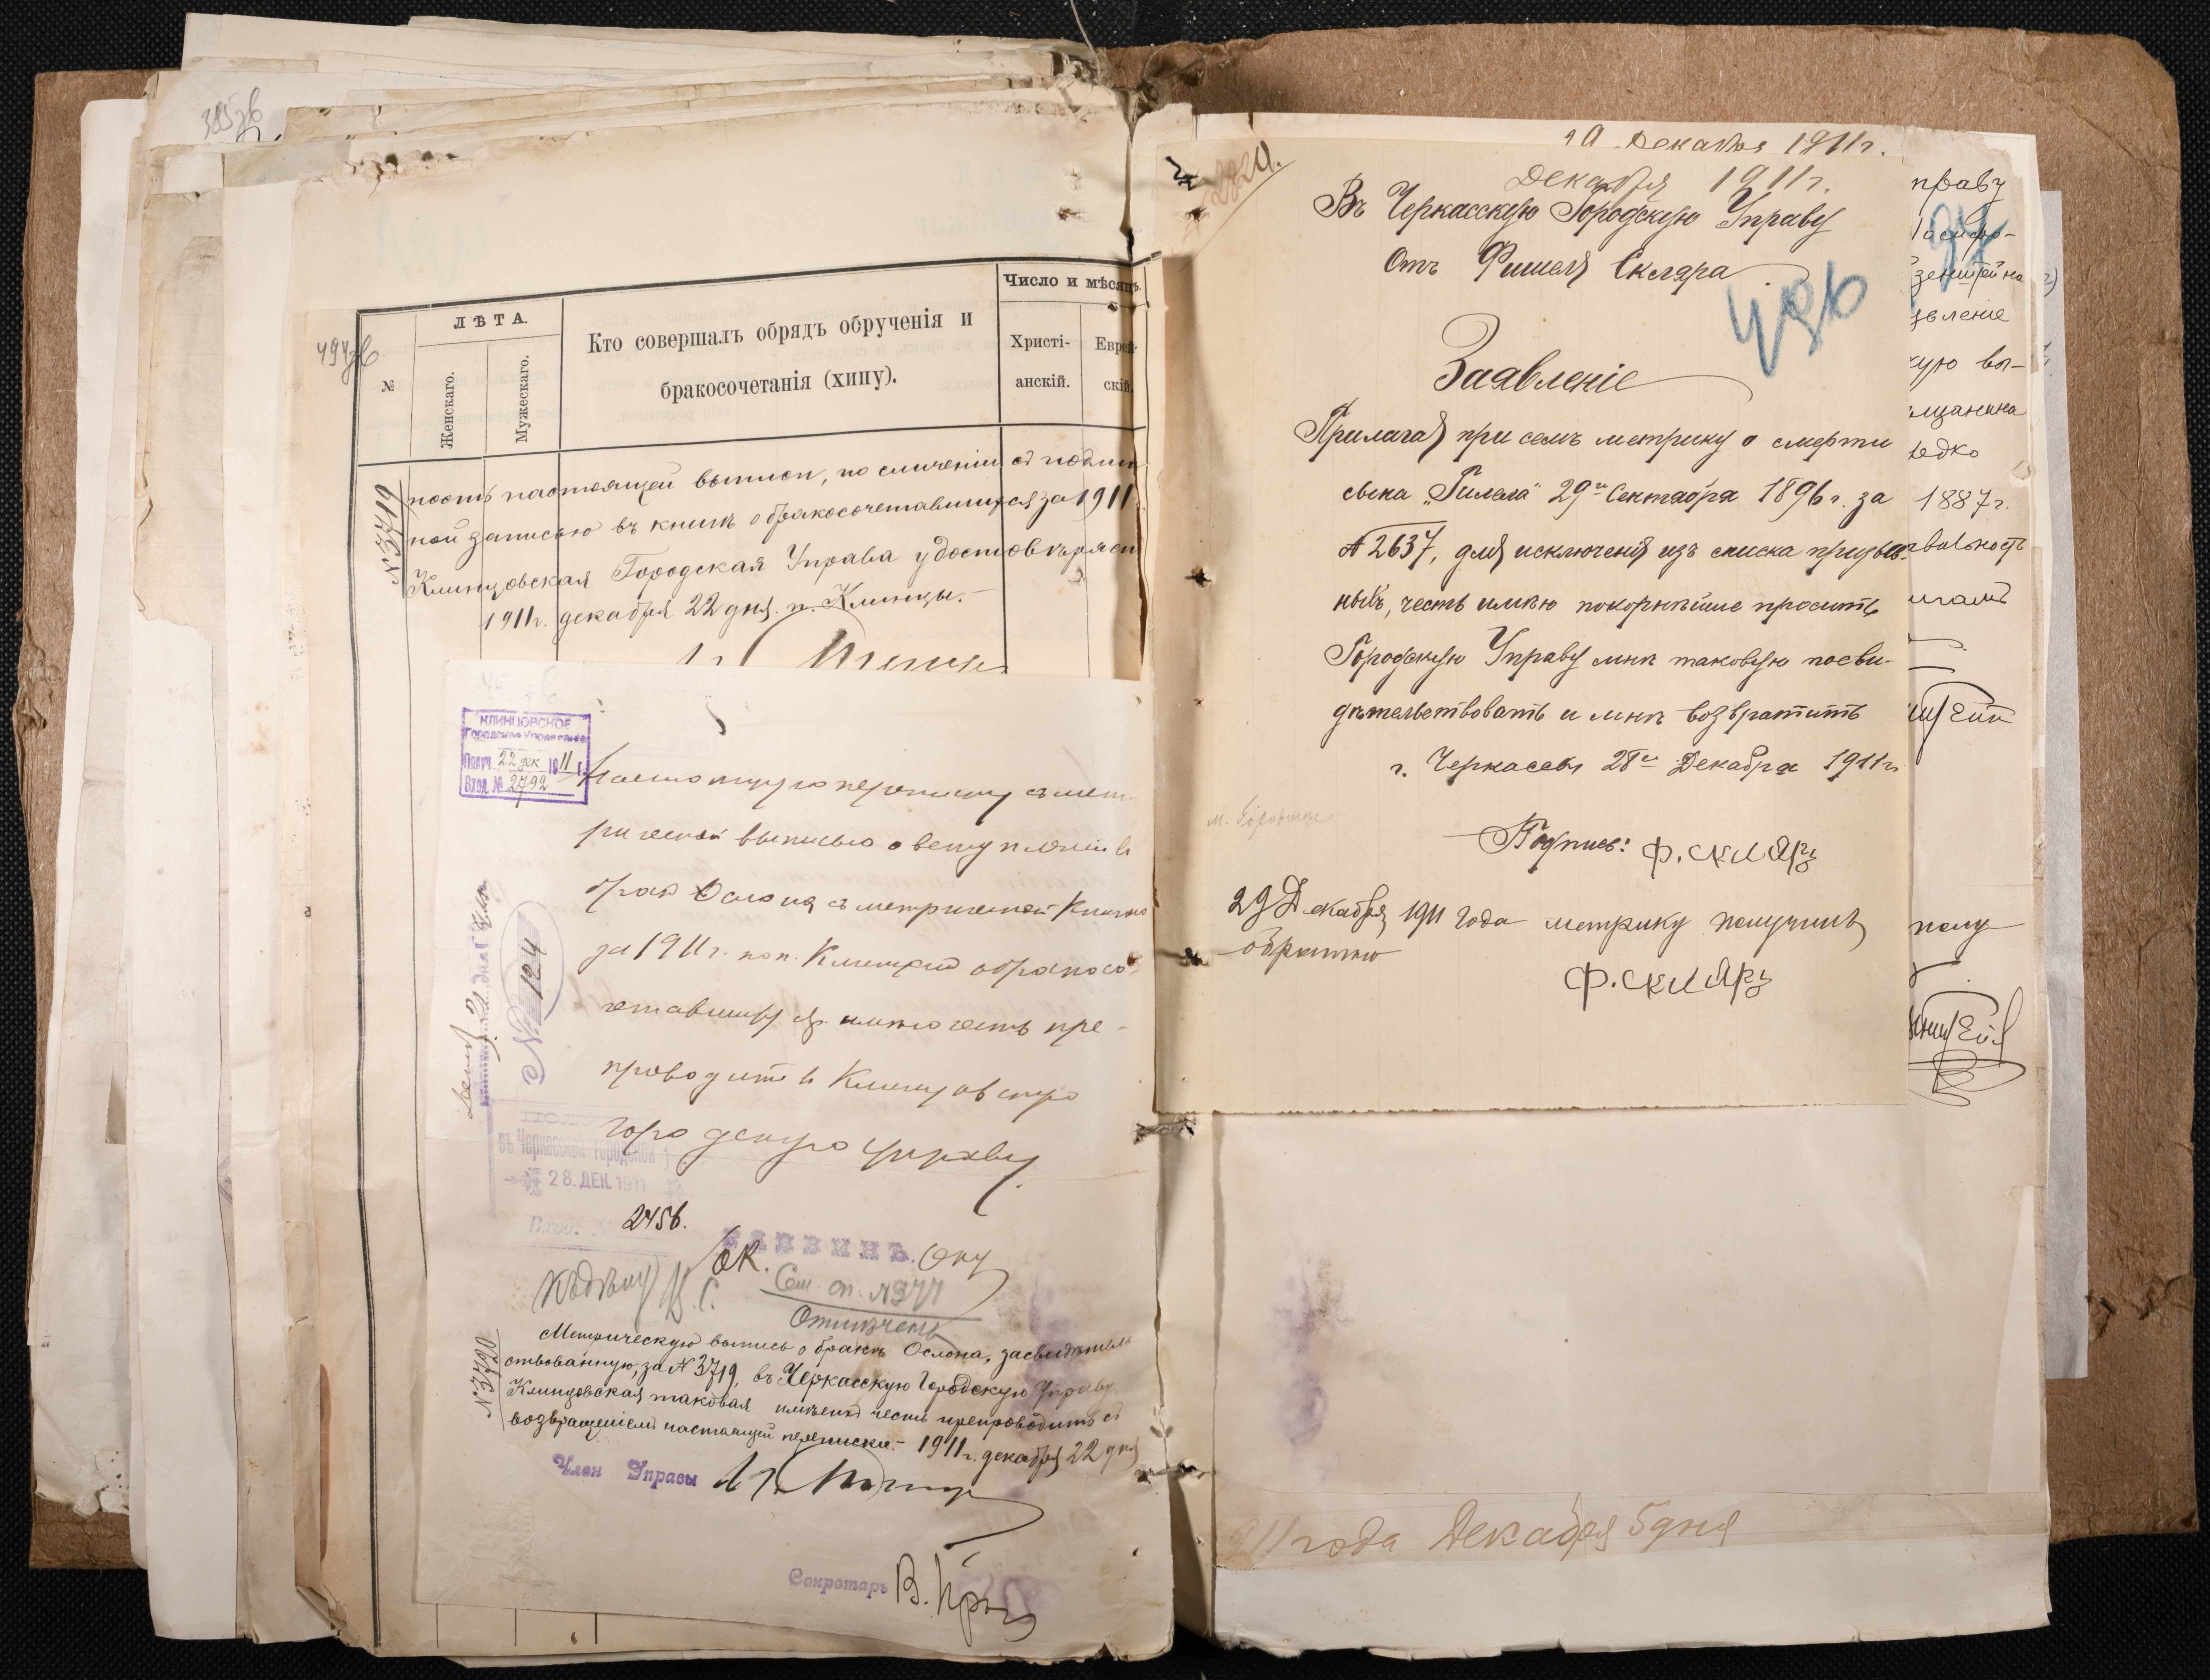 385 зв
494 зв
№
ЛѢТА.
Женскаго.
Мужескаго.
Кто совершалъ обрядъ обрученія и
бракосочетанія (хипу).
Число и мѣсяцъ.
Христі-
анскій.
Еврей-
скій.
№ 3719
ность настоящей выписи, по сличеніи съ подлин
ной записью въ книгѣ о бракосочетавшихся за 1911
Клинцовская Городская Управа удостовѣряетъ
1911 г. декабря 22 дня. п. Клинцы.
КЛИНЦОВСКОЕ
Городское Управленіе
Получ. 22 дек 1911 г.
Вход. № 2792
Настоящую переписку съ мет-
рической выписью о вступленіи въ
бракъ Ослона съ метрической книгою
за 1911 г. по п. Клинцы о бракосо-
четавшихся имѣю честь пре-
проводить въ Клинцовскую
Городскую Управу.
№ 124
въ Черкасской Городской
28. ДЕК. 1911
Вход. 2456.
Къ дѣлу
См. оп. № 377
Отмѣчено
№ 3720
Метрическую выпись о бракѣ Ослона, засвидѣтель
ствованную, за № 3719, въ Черкасскую Городскую Управу
Клинцовская таковая имѣетъ честь препроводить съ
возвращеніемъ настоящей переписки. 1911 г. декабря 22 дня
Членъ Управы
Секретарь
29 Декабря 1911 г.
Декабря 1911 г.
2820.
Въ Черкасскую Городскую Управу
Отъ Фишеля Скляра
496
Заявленіе
Прилагая при семъ метрику о смерти
сына „Гилеля" 29го Сентября 1896 г. за
№ 2637, для исключенія изъ списка призыв-
ныхъ, честь имѣю покорнѣйше просить
Городскую Управу мнѣ таковую посви-
дѣтельствовать и мнѣ возвратить
г. Черкассы 28го Декабря 1911 г.
м. Городище
Подпись: Ф. Скляръ
29 Декабря 1911 года метрику получилъ
обратно
Ф. Скляръ
праву
зенштейна
явленіе
кую вы-
мщанина
едко
1887 г.
полу
911 года Декабря 5 дня